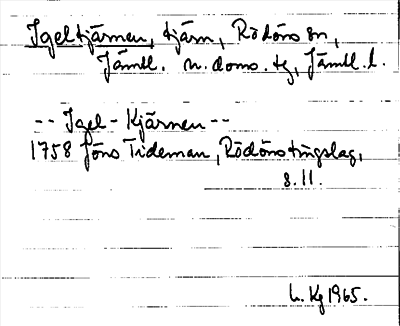 Igeltjärnen, tjärn, Rödöns sn,
Jämtl. n. doms. tg, Jämtl. l.
-- Igel-Kjärnen --
1758 Jöns Tideman, Rödöns tingslag,
s. 11.
L. Kg 1965.